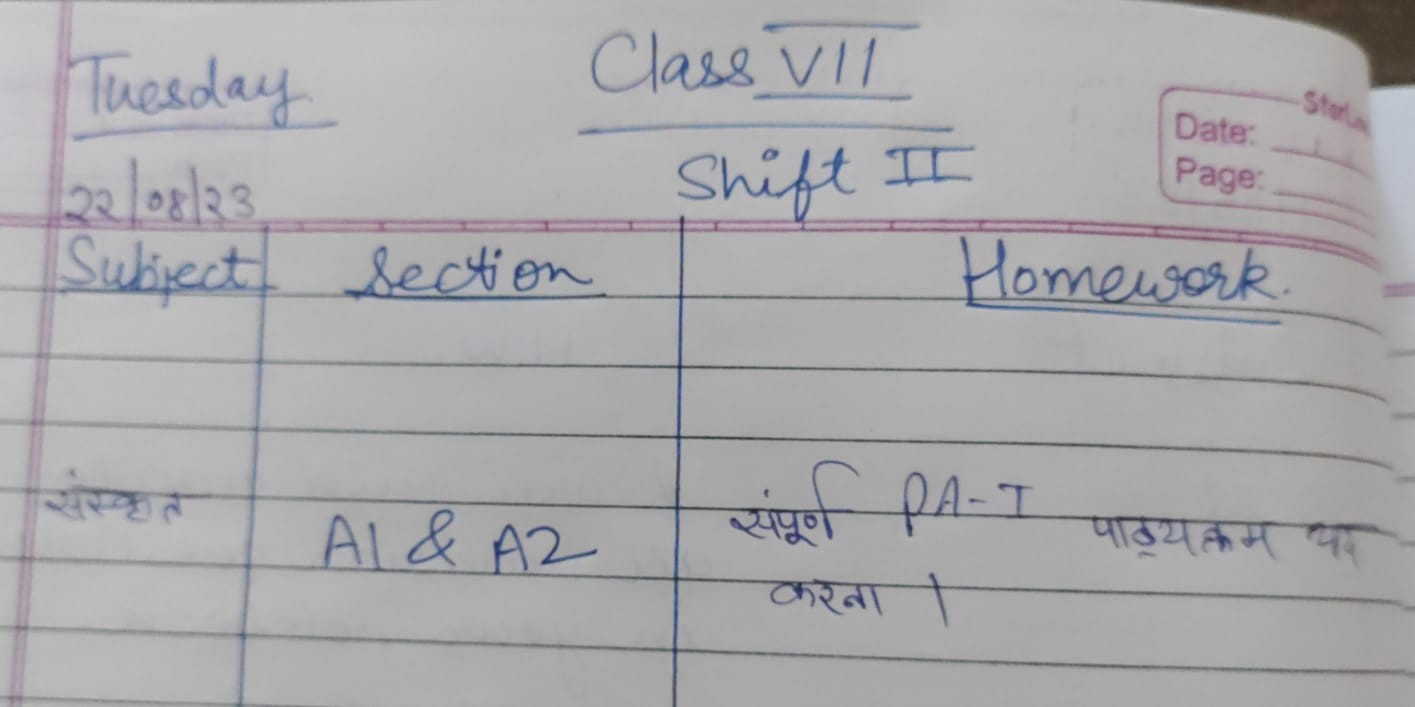 Tuesday
Class VII
22/08/23
Shift II
Date:
Page:
Subject Section Homework.
संस्कृत A1 & A2 संपूर्ण PA-I पाठ्यक्रम याद
करना ।